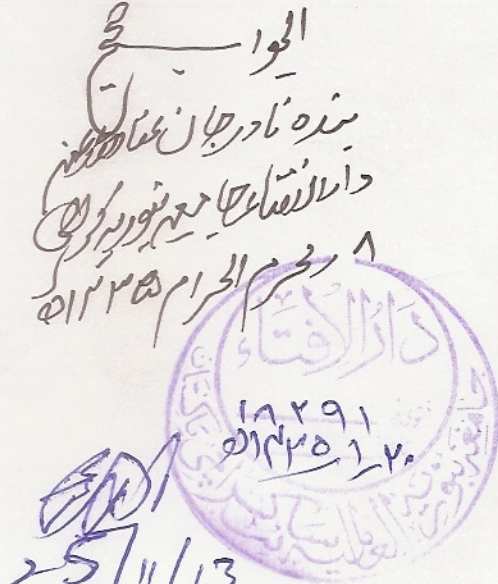 الجواب صحیح
بندہ نادر جان عفا اللہ عنہ
دارالافتاء جامعہ بنوریہ کراچی
۸ محرم الحرام ۱۴۳۵ھ
دار الافتاء
۱۸۲۹۱
۲۰ ۱ ۱۴۳۵ھ
25/11/13